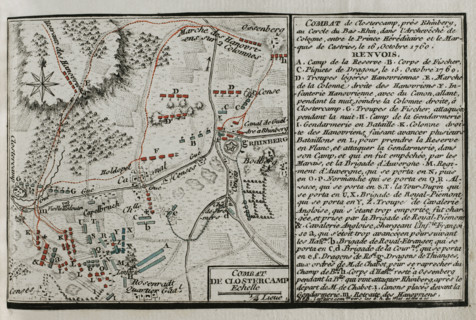 COMBAT de Clostercamp, près Rhinberg,
au Cercle du Bas-Rhin, dans l'Archevêché de
Cologne, entre le Prince Héréditaire et le Mar-
quis de Castries, le 16, Octobre 1760.
RENVOIS.
A. Camp de la Reserve. B. Corps de Fischer.
C. Piquets de Dragons, le 15. Octobre 1760.
D. Troupes légères Hanovriennes. E. Marche
de la Colonne droite des Hanovriens X. In-
fanterie Hanovrienne, avec du Canon, allant,
pendant la nuit, joindre la Colonne droite, à
Clostercamp. G. Troupes de Fischer, attaquées
pendant la nuit. H. Camp de la Gendarmerie
I. Gendarmerie en Bataille. K. Colonne droi-
te des Hanovriens, faisant avancer plusieurs
Bataillons en L, pour prendre la Reserve
en Flanc, et attaquer la Gendarmerie, dans
son Camp, et qui en fut empêchée, par les
Marais, et la Brigade d'Auvergne. M. Regi-
ment d'Auvergne, qui se porta en N, puis
en O. P. Normandie qui se porta en Q, R. Al-
sace, qui se porta en S. T. la Tour-Dupin qui
se porta en U, X. Brigade de Royal-Piemont
qui se porta en Y, Z. Troupe de Cavalerie
Angloise, qui s'étant trop emportée, fut char-
gée, et prise par la Brigade de Royal-Piemont
& Cavalerie Angloise, Chargeant
a, qui s'étoit trop avancé en poursuivant
les b, Brigade de Royal-Etranger, qui se
porta en C, d, Brigade de la Cour qui se porta
en e. S. Dragons de Dragons de Thianges,
aux ordres de M. de Chabot, pour se raprocher du
Champ de resté à Ossenberg
pendant la qui vint attaquer Rhinberg, après le
départ de M. de Chabot. Canons placés devant la
Gendarmerie. m. Retraite des Hanovriens.
Marche des Hanovriens
en sur Colonnes
Ossenberg
Canal de
RHINBERG
Canal
Clostercamp
Camp
Rosenradt
Quartier
COMBAT
DE CLOSTERCAMP
Echelle
Lieue